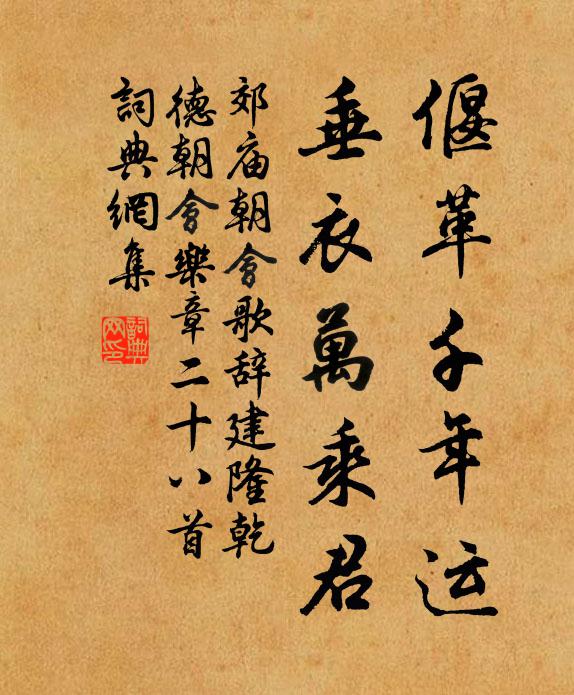 偃革千年运
垂衣萬乘君
郊庙朝會歌辞建隆乾
德朝會樂章二十八首
詞典網集
詞典网印